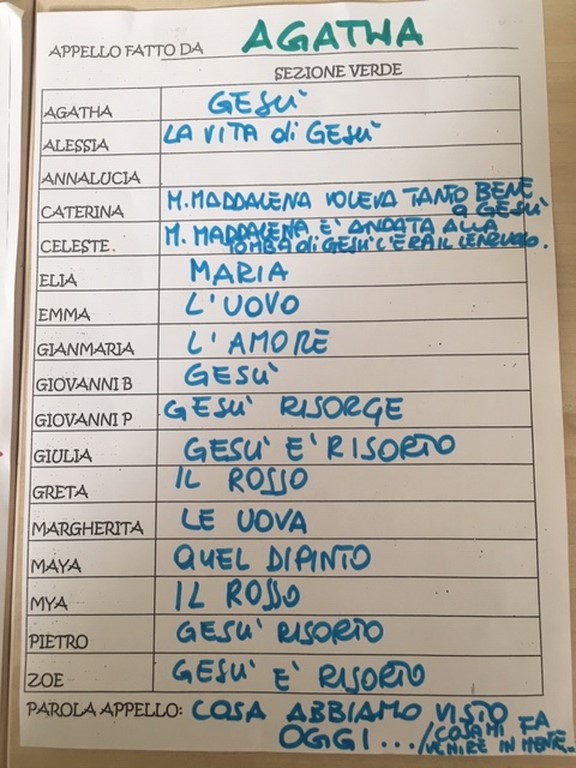 APPELLO FATTO DA AGATHA
SEZIONE VERDE
AGATHA GESU'
ALESSIA LA VITA di GESU'
ANNALUCIA
CATERINA M. MADDALENA VOLEVA TANTO BENE
a GESU'
CELESTE. M. MADDALENA E' ANDATA ALLA
TOMBA di GESU' C'ERA IL LENZUOLO.
ELIA MARIA
EMMA L'UOVO
GIANMARIA L'AMORE
GIOVANNI B GESU'
GIOVANNI P GESU' RISORGE
GIULIA GESU' E' RISORTO
GRETA IL ROSSO
MARGHERITA LE UOVA
MAYA QUEL DIPINTO
MYA IL ROSSO
PIETRO GESU' RISORTO
ZOE GESU' E' RISORTO
PAROLA APPELLO: COSA ABBIAMO VISTO
OGGI... / COSA MI FA
VENIRE IN MENTE...